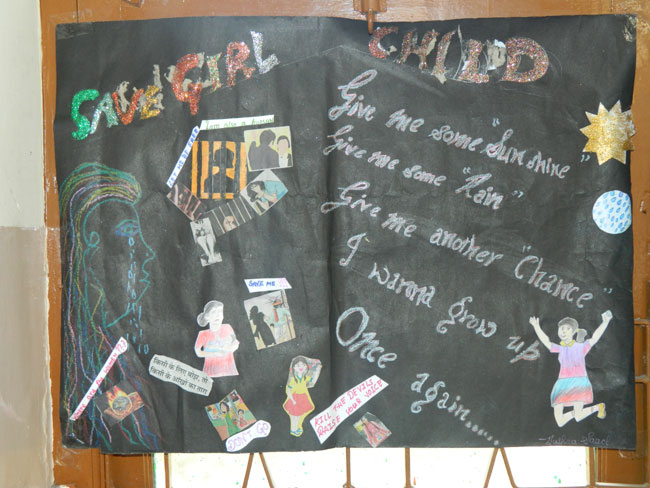 SAVE GIRL CHILD
Give me some "Sunshine"
Give me some "Rain"
Give me another "Chance"
I wanna grow up
Once again......
I am also a human
SAVE ME
किसी के लिए बोझ, तो
किसी के आँखों का तारा
KILL THE DEVILS
RAISE YOUR VOICE